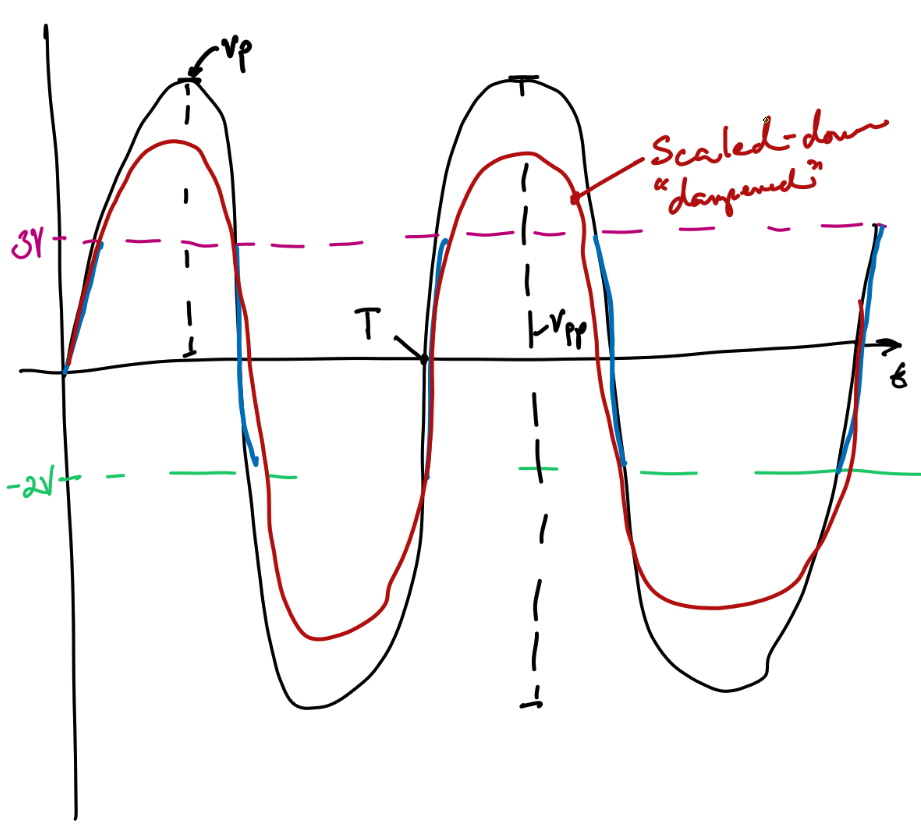 Vp
Scaled-down
"dampened"
3V
T
Vpp
t
-2V